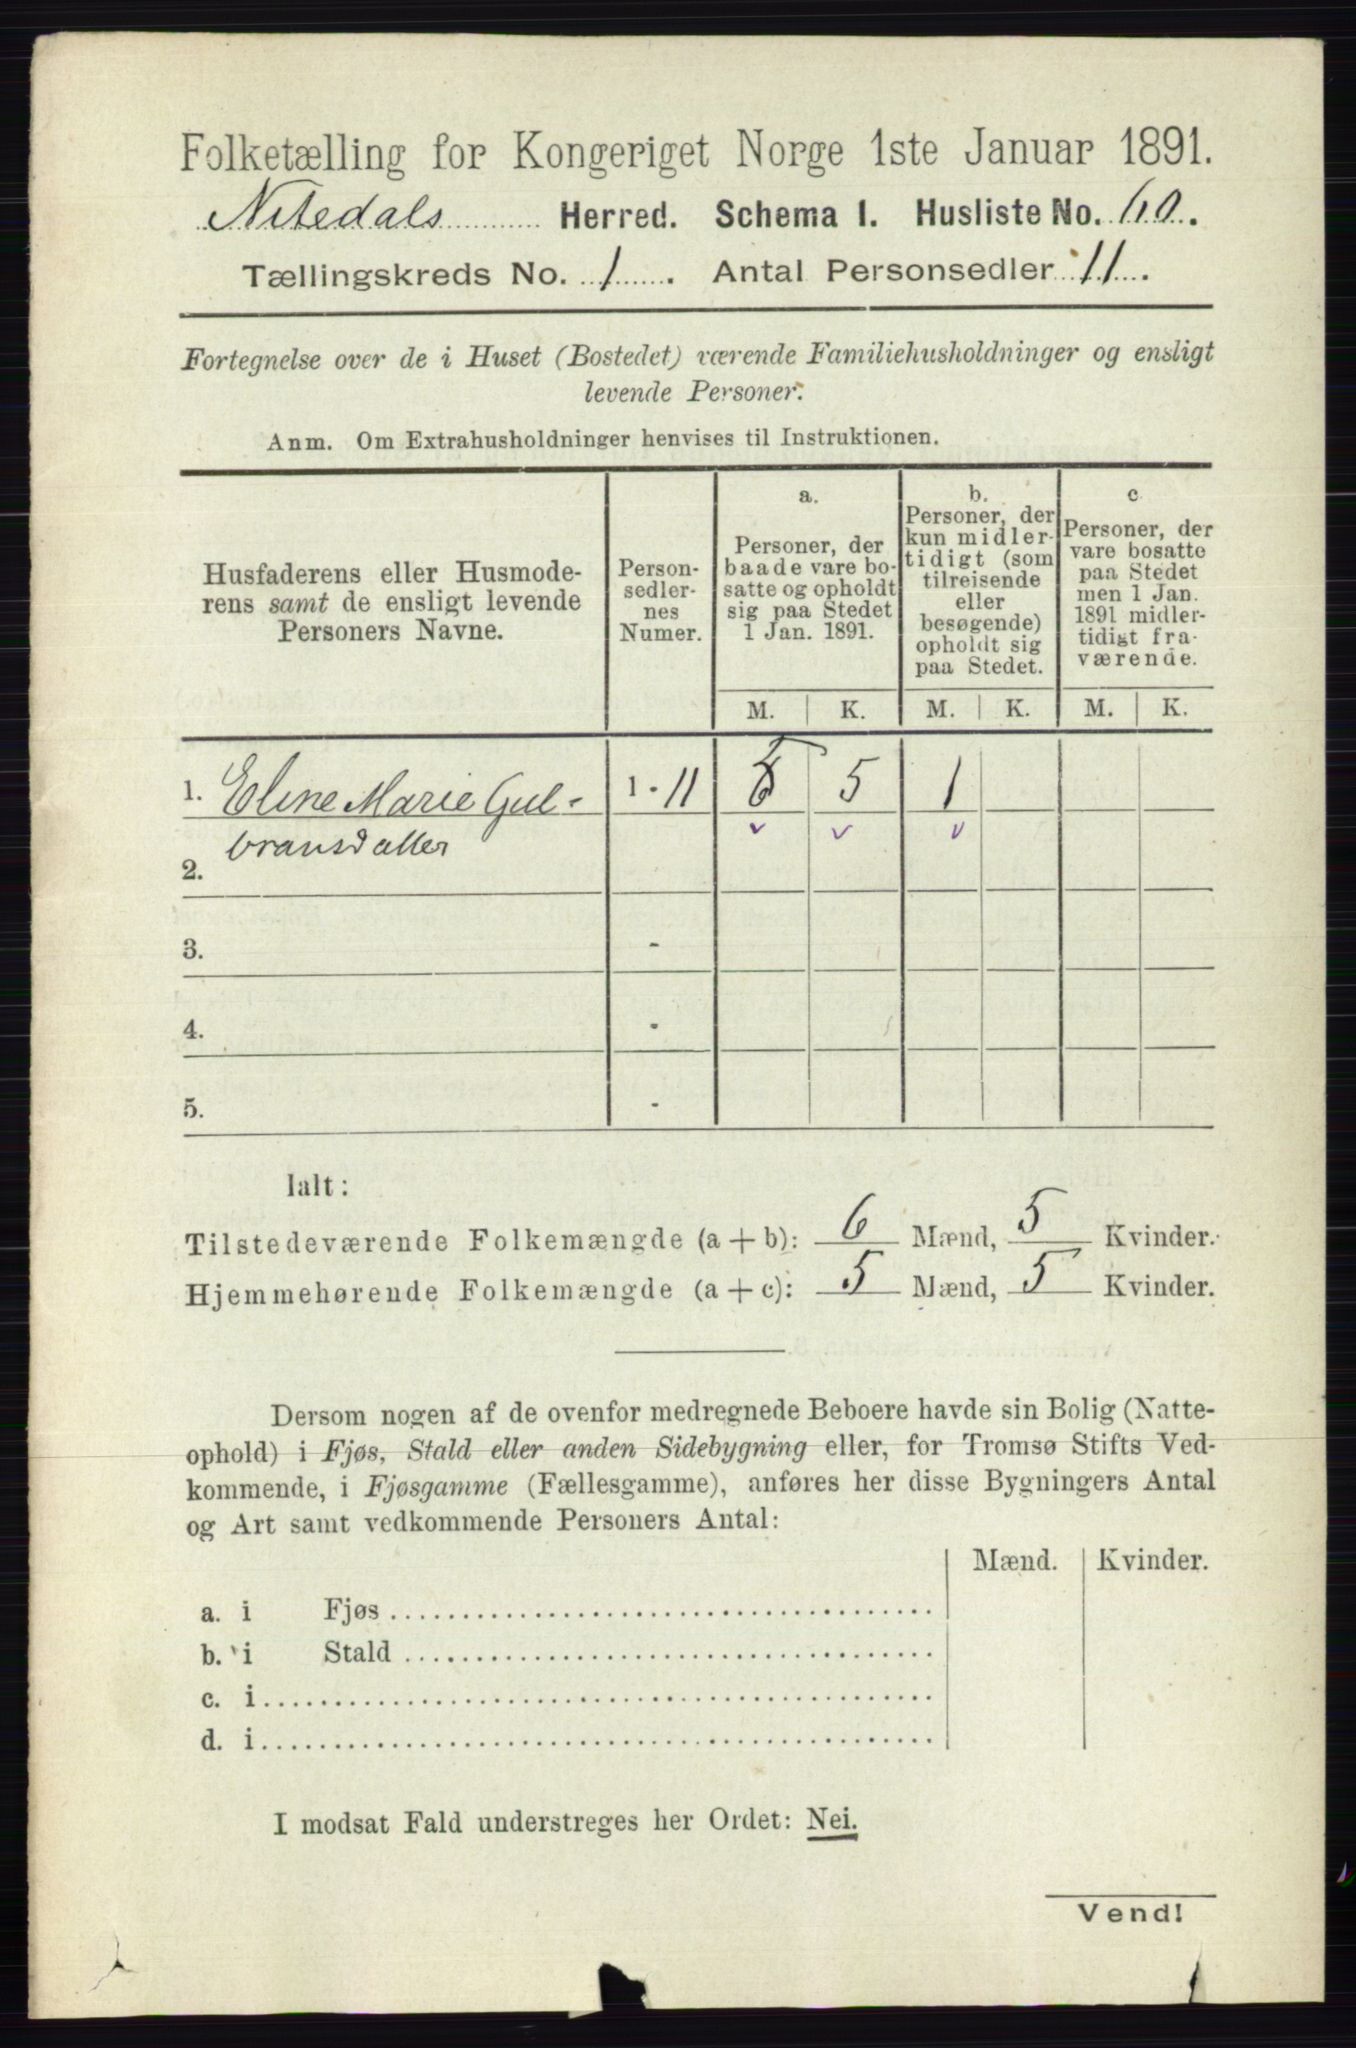 Folketælling for Kongeriget Norge 1ste Januar 1891.
Nitedals Herred. Schema 1. Husliste No. 60.
Tællingskreds No. 1. Antal Personsedler 11.
Fortegnelse over de i Huset (Bostedet) værende Familiehusholdninger og ensligt
levende Personer.
Anm. Om Extrahusholdninger henvises til Instruktionen.
Husfaderens eller Husmode-
rens samt de ensligt levende
Personers Navne.
Person-
sedler-
nes
Numer.
a.
Personer, der
baade vare bo-
satte og opholdt
sig paa Stedet
1 Jan. 1891.
b.
Personer, der
kun midler-
tidigt (som
tilreisende
eller
besøgende)
opholdt sig
paa Stedet.
c
Personer, der
vare bosatte
paa Stedet
men 1 Jan.
1891 midler-
tidigt fra-
værende.
M. K. M. K. M. K.
1. Eline Marie Gul- 1 - 11 5 5 1
bransdatter
2.
3. -
4. -
5. -
Ialt:
Tilstedeværende Folkemængde (a + b): 6 Mænd, 5 Kvinder.
Hjemmehørende Folkemængde (a + c): 5 Mænd, 5 Kvinder.
Dersom nogen af de ovenfor medregnede Beboere havde sin Bolig (Natte-
ophold) i Fjøs, Stald eller anden Sidebygning eller, for Tromsø Stifts Ved-
kommende, i Fjøsgamme (Fællesgamme), anføres her disse Bygningers Antal
og Art samt vedkommende Personers Antal:
Mænd. Kvinder.
a. i Fjøs
b. i Stald
c. i
d. i
I modsat Fald understreges her Ordet: Nei.
Vend!